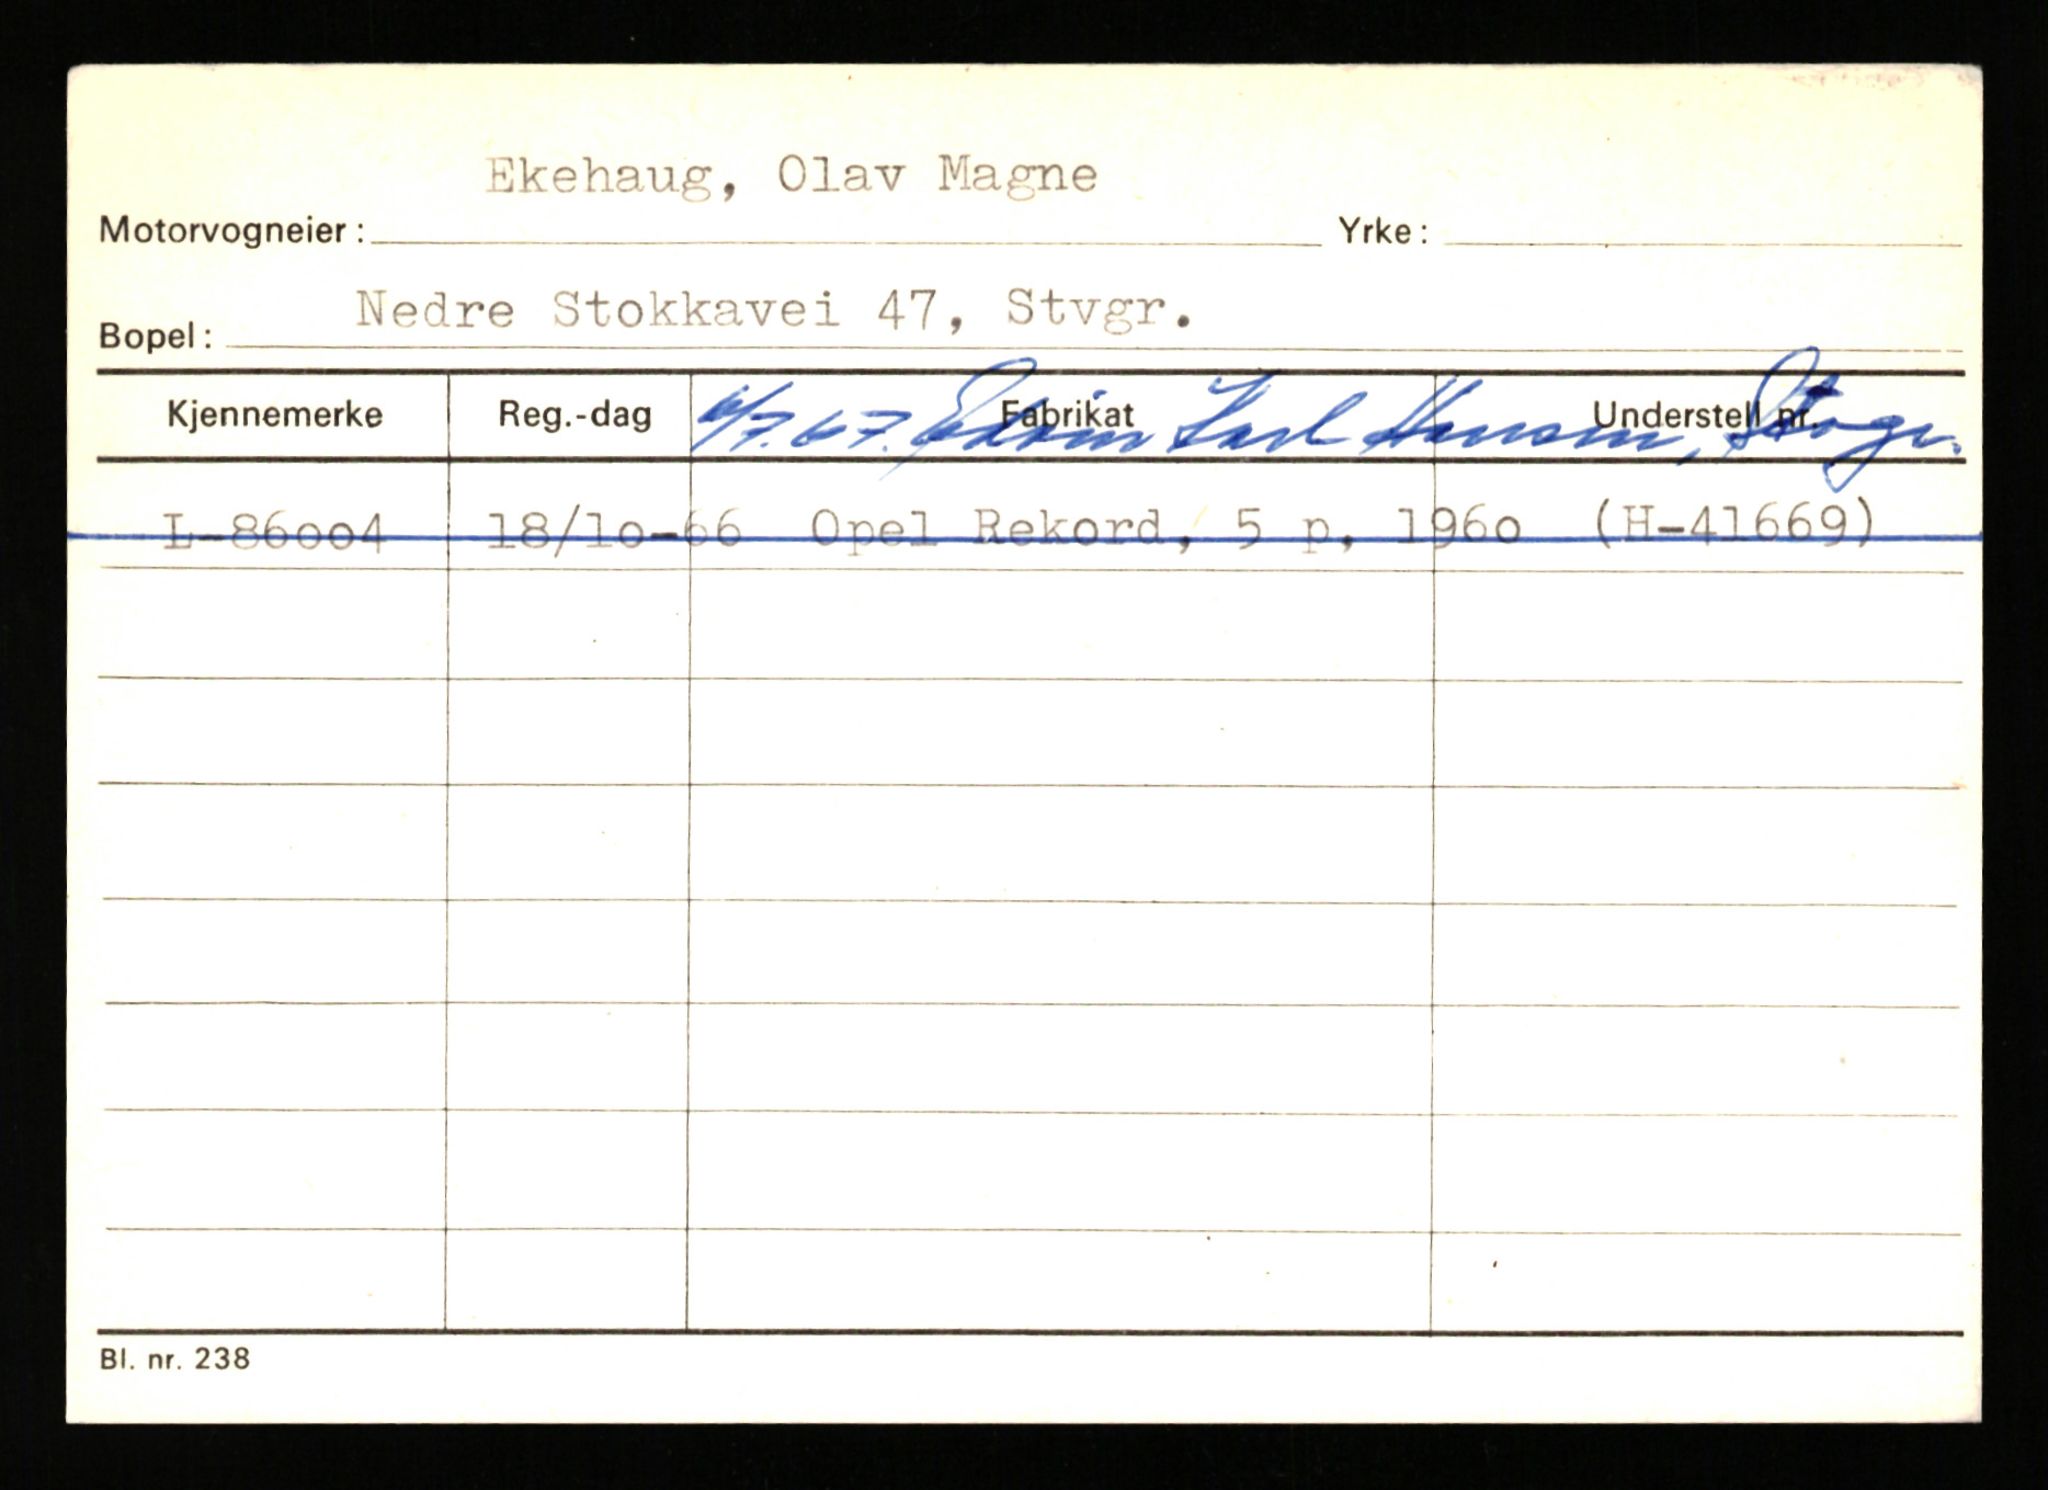 Ekehaug, Olav Magne
Motorvogneier: Yrke:
Nedre Stokkavei 47, Stvgr.
Bopel:
Kjennemerke Reg.-dag Fabrikat Understell nr.
6/7.67. Edvin Karl Hansen, Stvgr.
L-86oo4 18/1o-66 Opel Rekord, 5 p, 196o (H-41669)
Bl. nr. 238